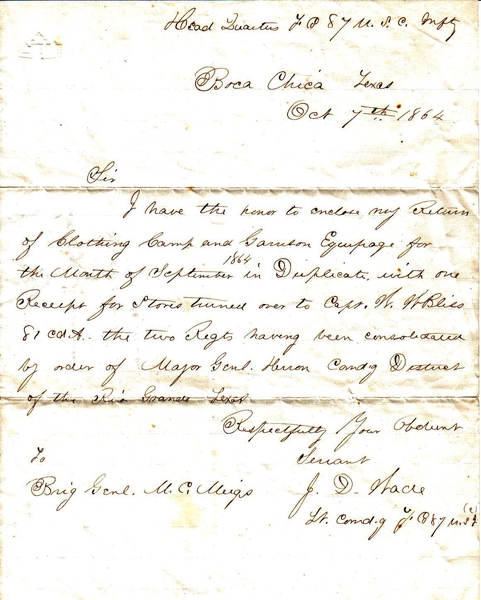 Head Quarters F Co 87 U.S.C. Infty
Boca Chica Texas
Oct 7th 1864
Sir
I have the honor to enclose my Return
of Clothing Camp and Garrison Equipage for
the Month of September 1864 in Duplicate with one
Receipt for Stores turned over to Capt. W. H Bliss
81 cd the two Regts having been consolidated
by order of Major Genl. Herron Comdg District
of the Rio Grande Texas
Respectfully Your Obedient
Servant
To
Brig Genl. M. C. Meigs J. D. Wade
Lt. Comd.g F Co 87 U.S. (C) I